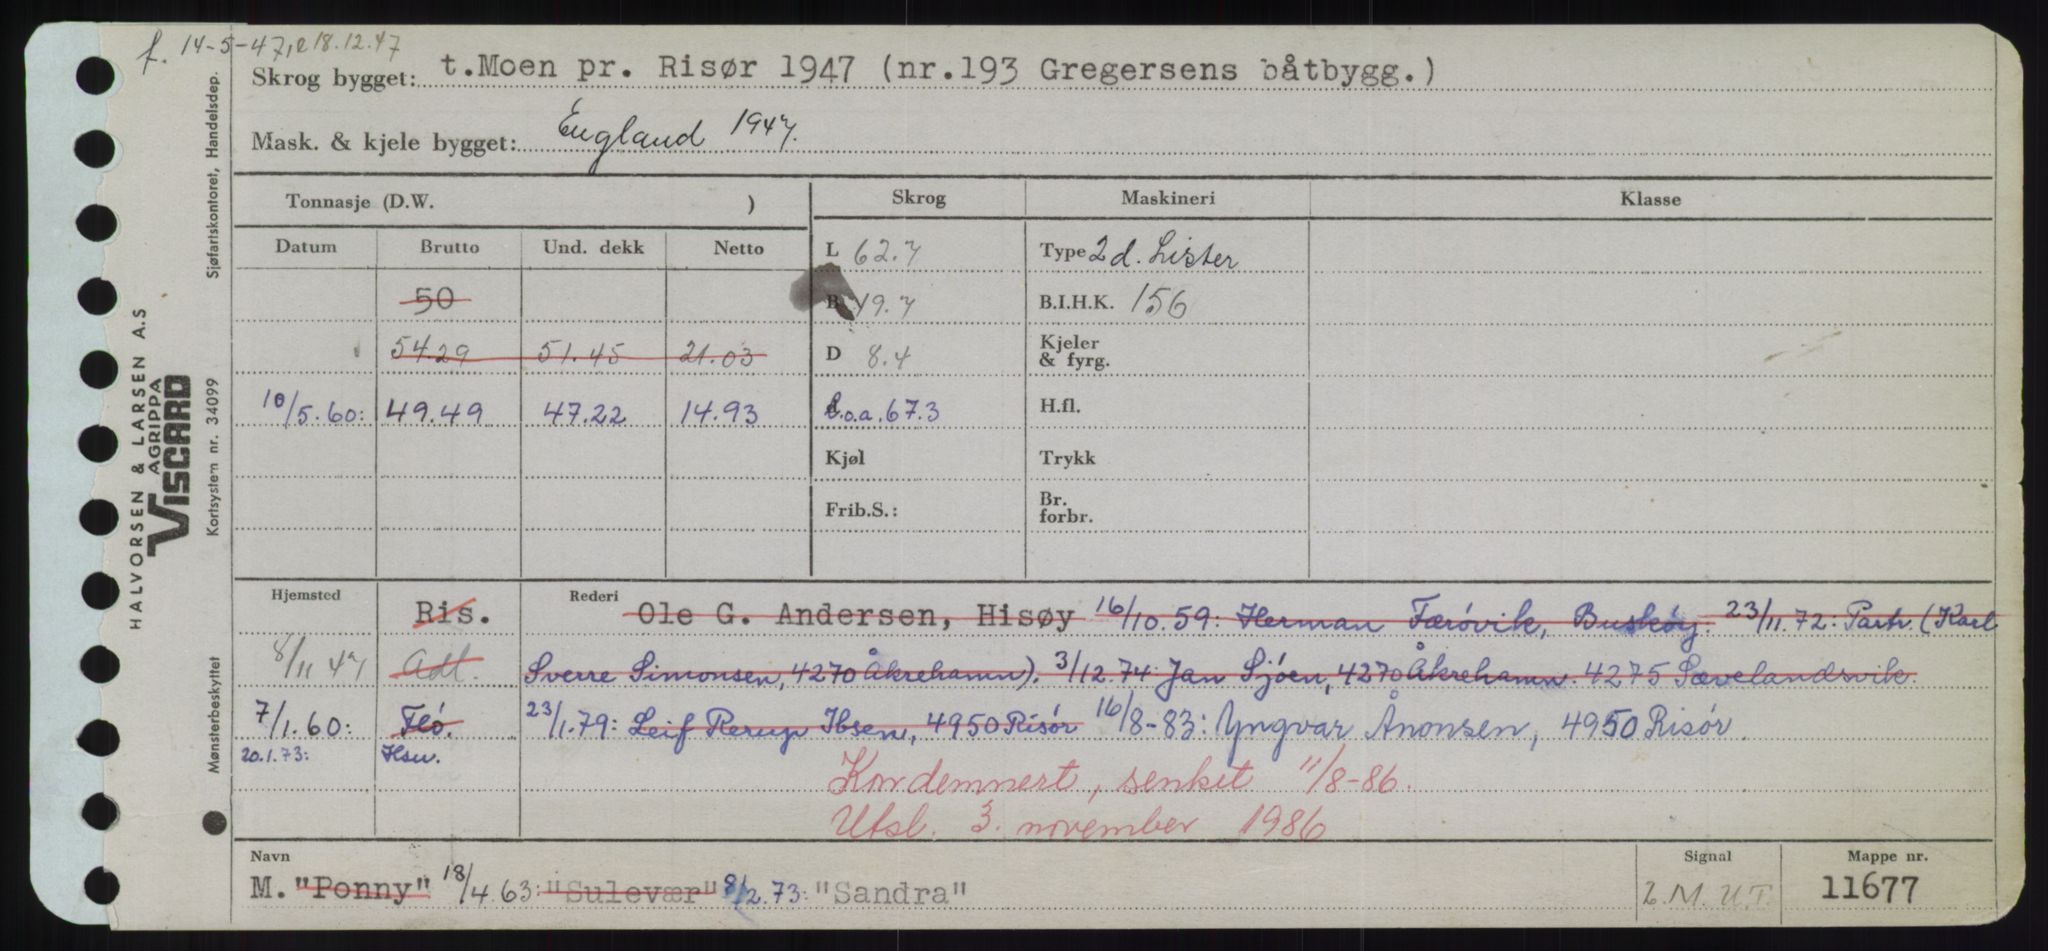 f. 14-5-47, e 18.12.47
Skrog bygget: t.Moen pr. Risør 1947 (nr.193 Gregersens båtbygg.)
Mask. & kjele bygget: England 1947.
Tonnasje (D.W. ) Skrog Maskineri Klasse
Datum Brutto Und. dekk Netto L 62.7 Type 2 d. Lister
50 B. 19.7 B.I.H.K. 156
54.29 51.45 21.03 D 8.4 Kjeler & fyrg.
10/5.60: 49.49 47.22 14.93 l.o.a. 67.3 H.fl.
Kjøl Trykk
Frib.S.: Br. forbr.
Hjemsted Ris. Rederi Ole G. Andersen, Hisøy 16/10.59: Herman Færóvik, Buskóy. 23/11.72: Partr. (Karl
8/11 47 Adl. Sverre Simonsen, 4270 Åkrehamn). 3/12.74 Jan Sjóen, 4270 Åkrehamn. 4275 Sævelandsvik.
7/1.60: Fló. 23/1.79: Leif Rerup Ibsen, 4950 Risór 16/8-83: Yngvar Ånonsen, 4950 Risór.
20.1.73: Hsu. Kondemnert, senket 11/8-86.
Utsl. 3. november 1986
Navn Signal Mappe nr.
M. "Ponny" 18/4.63: "Sulevær" 8/2.73: "Sandra" L.M.U.T. 11677
HALVORSEN & LARSEN A.S
AGRIPPA
VISCARD
Kortsystem nr. 34099
Sjøfartskontoret, Handelsdep.
Mønsterbeskyttet